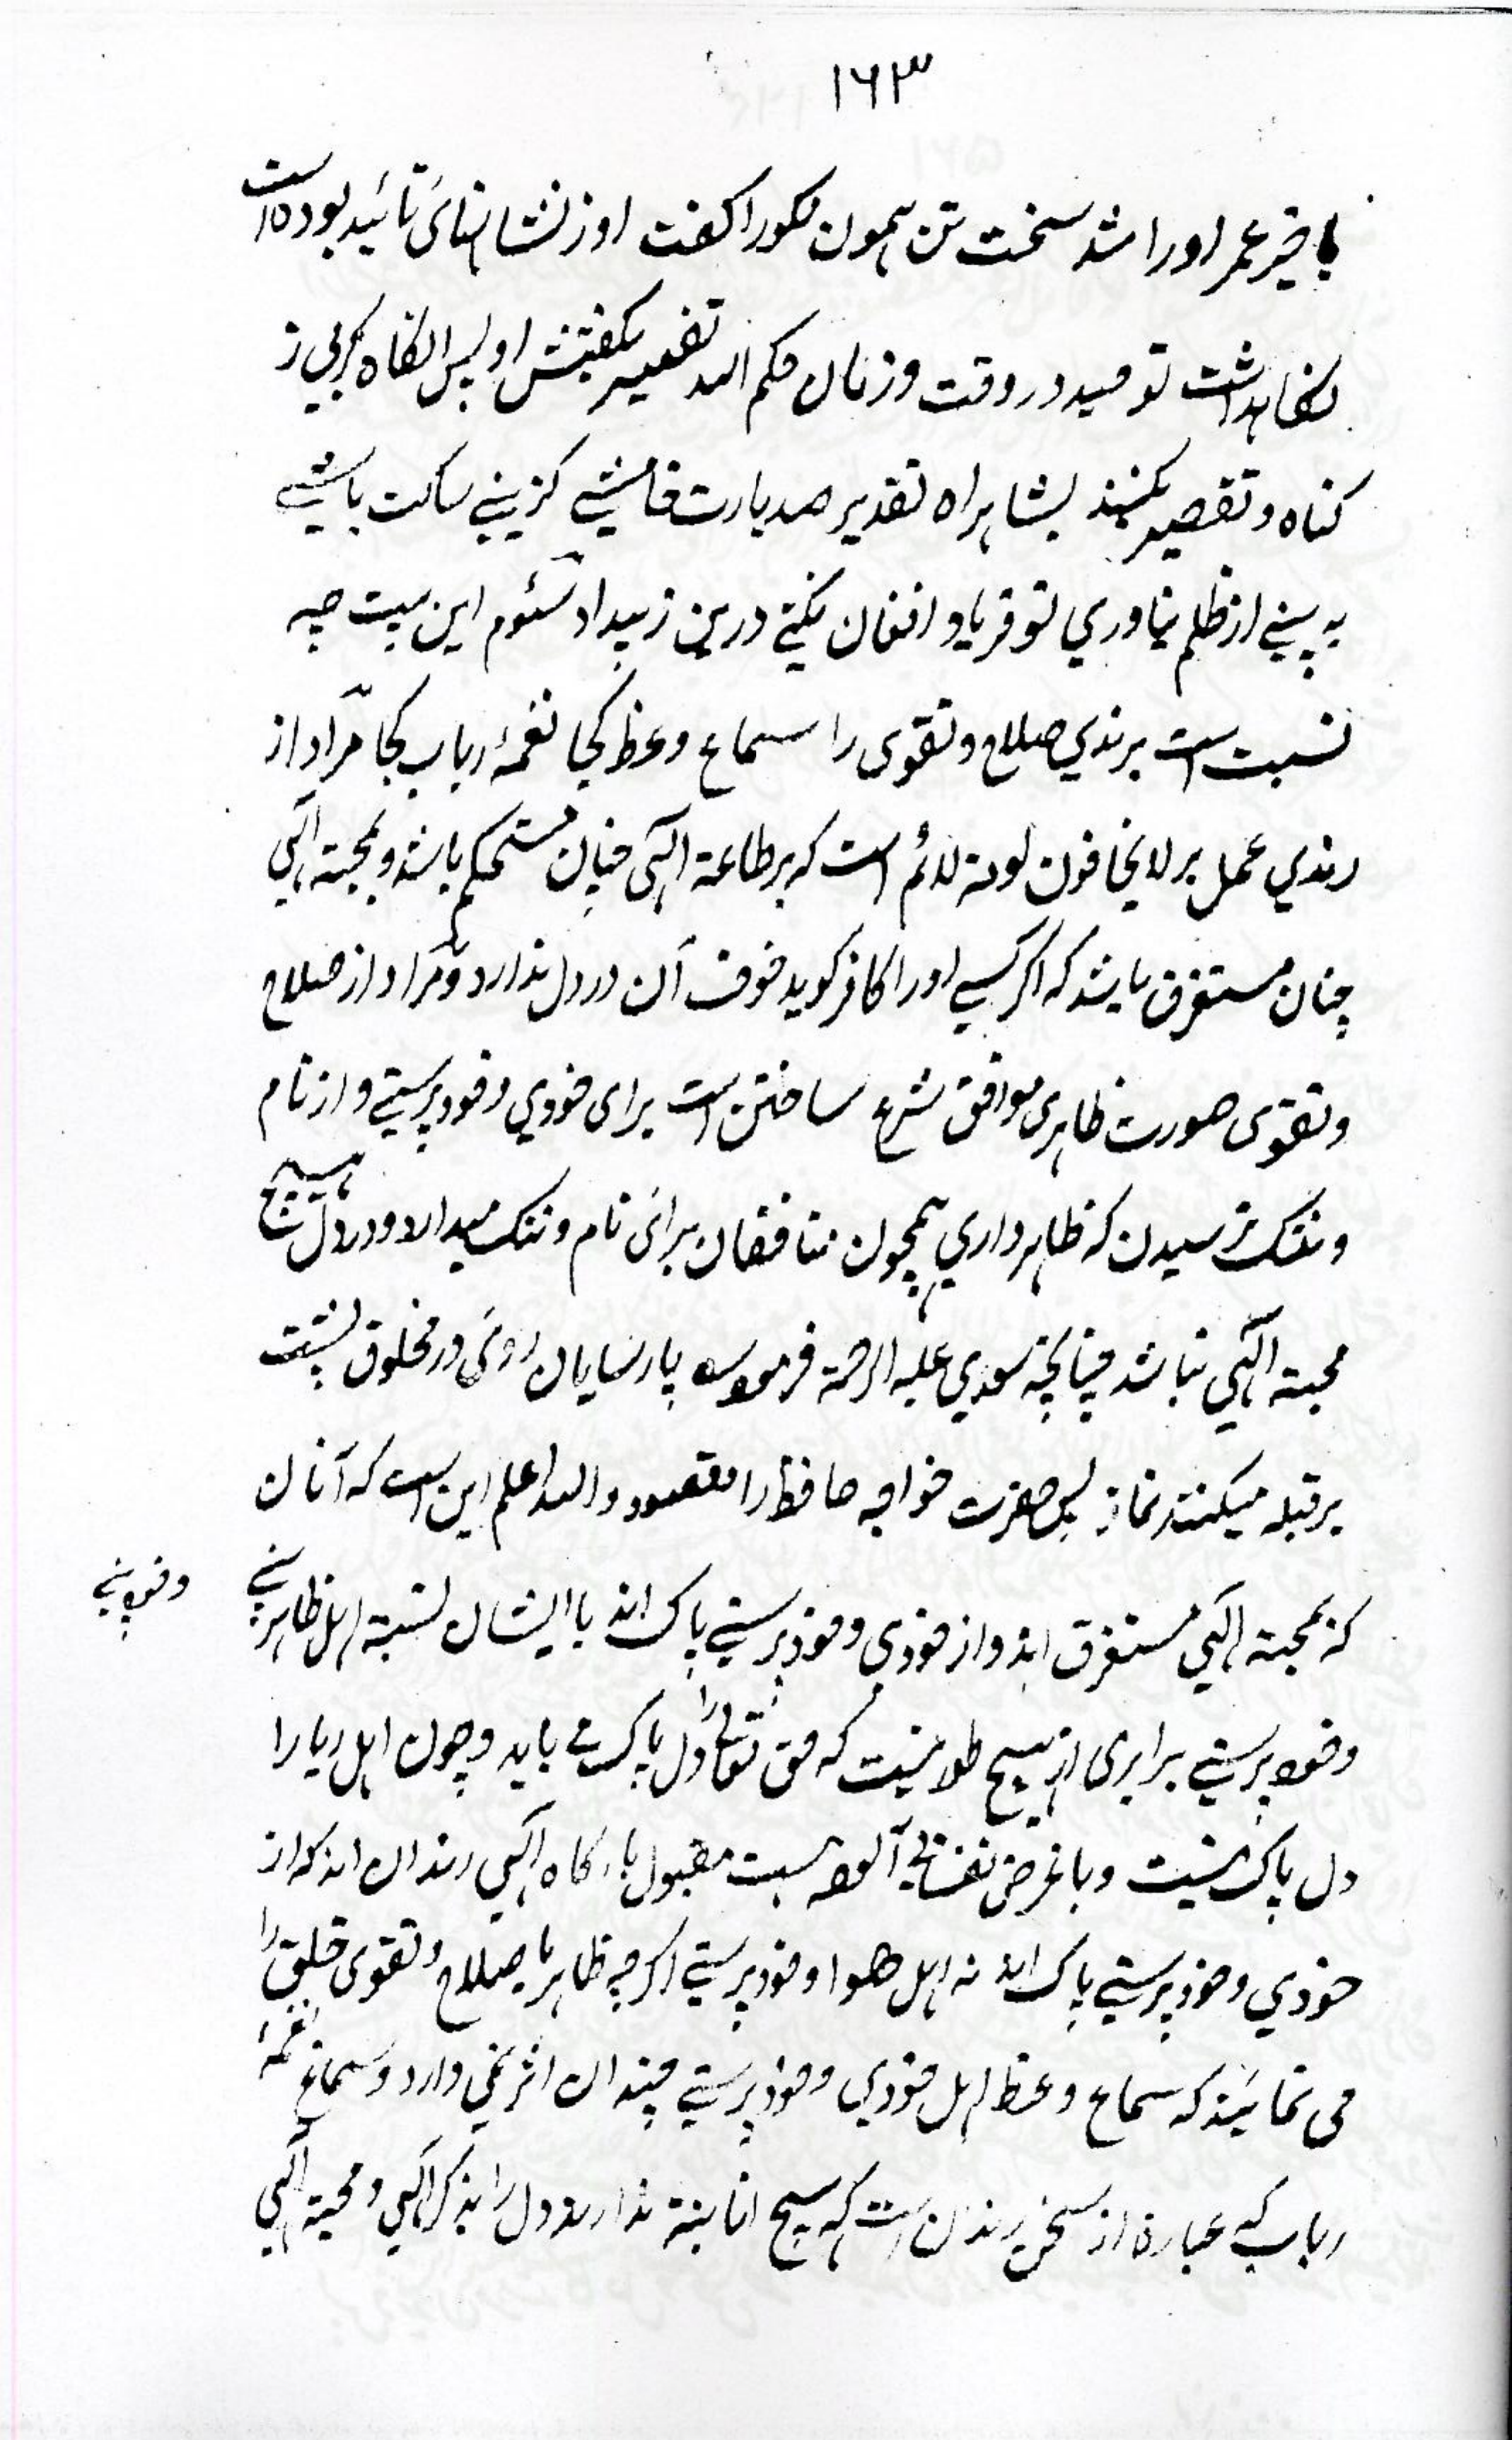 ۱۶۳
باخیر عمر او را شد سخت تن همون کور اکفت او ز نشانهای تائید بوده است
نکاهداشت توحید در وقت و زمان حکم الله تغییر بکفتش او پس انکاه کریی ز
کناه و تقصیر بکنند بشاهراه تقدیر صد بارت خامشی کزینی ساکت باشی
به بینی از ظلم نیاوری تو فریاد و افغان نکنی درین ز بیداد سئوم این بیت چه
نسبت است برندی صلاح و تقوی را سماع وعظ کجا نغمهٔ رباب کجا مراد از
رندی عمل بر لا یخافون لومة لائم است که بر طاعة الهی چنان مستحکم باشد و بمحبة الهی
چنان مستغرق باشد که اکر کسی او را کافر کوید خوف آن در دل ندارد و مراد از صلاح
و تقوی صورت ظاهری موافق شرع ساختن است برای خودی و خودپرستی و از نام
و ننک ترسیدن که ظاهرداری همچون منافقان برای نام و ننک میدارد و در دل هیچ
محبة الهی نباشد چنانچه سعدی علیه الرحمة فرموده پارسایان روی در مخلوق پشت
بر قبله میکنند نماز پس حضرت خواجه حافظ را مقصود والله اعلم این است که آنان
که بمحبة الهی مستغرق اند و از خودی و خودپرستی پاک اند با ایشان نسبة اهل ظاهر بینی
و خودبینی
و خودپرستی برابری از هیچ طور نیست که حق تعالی را دل پاک می باید و چون اهل ریا را
دل پاک نیست و باغرض نفسانی آلوده هست مقبول بارکاه الهی رندان اند که از
خودی و خودپرستی پاک اند نه اهل هوا و خودپرستی اکرچه ظاهر با صلاح و تقوی خلق را
می نمایند که سماع وعظ اهل خودی و خودپرستی چندان اثر نمی دارد و سماع نغمهٔ
رباب که عبارة از سخن رندان است که هیچ انانیة ندارند و دل را بذکر الهی و محبة الهی